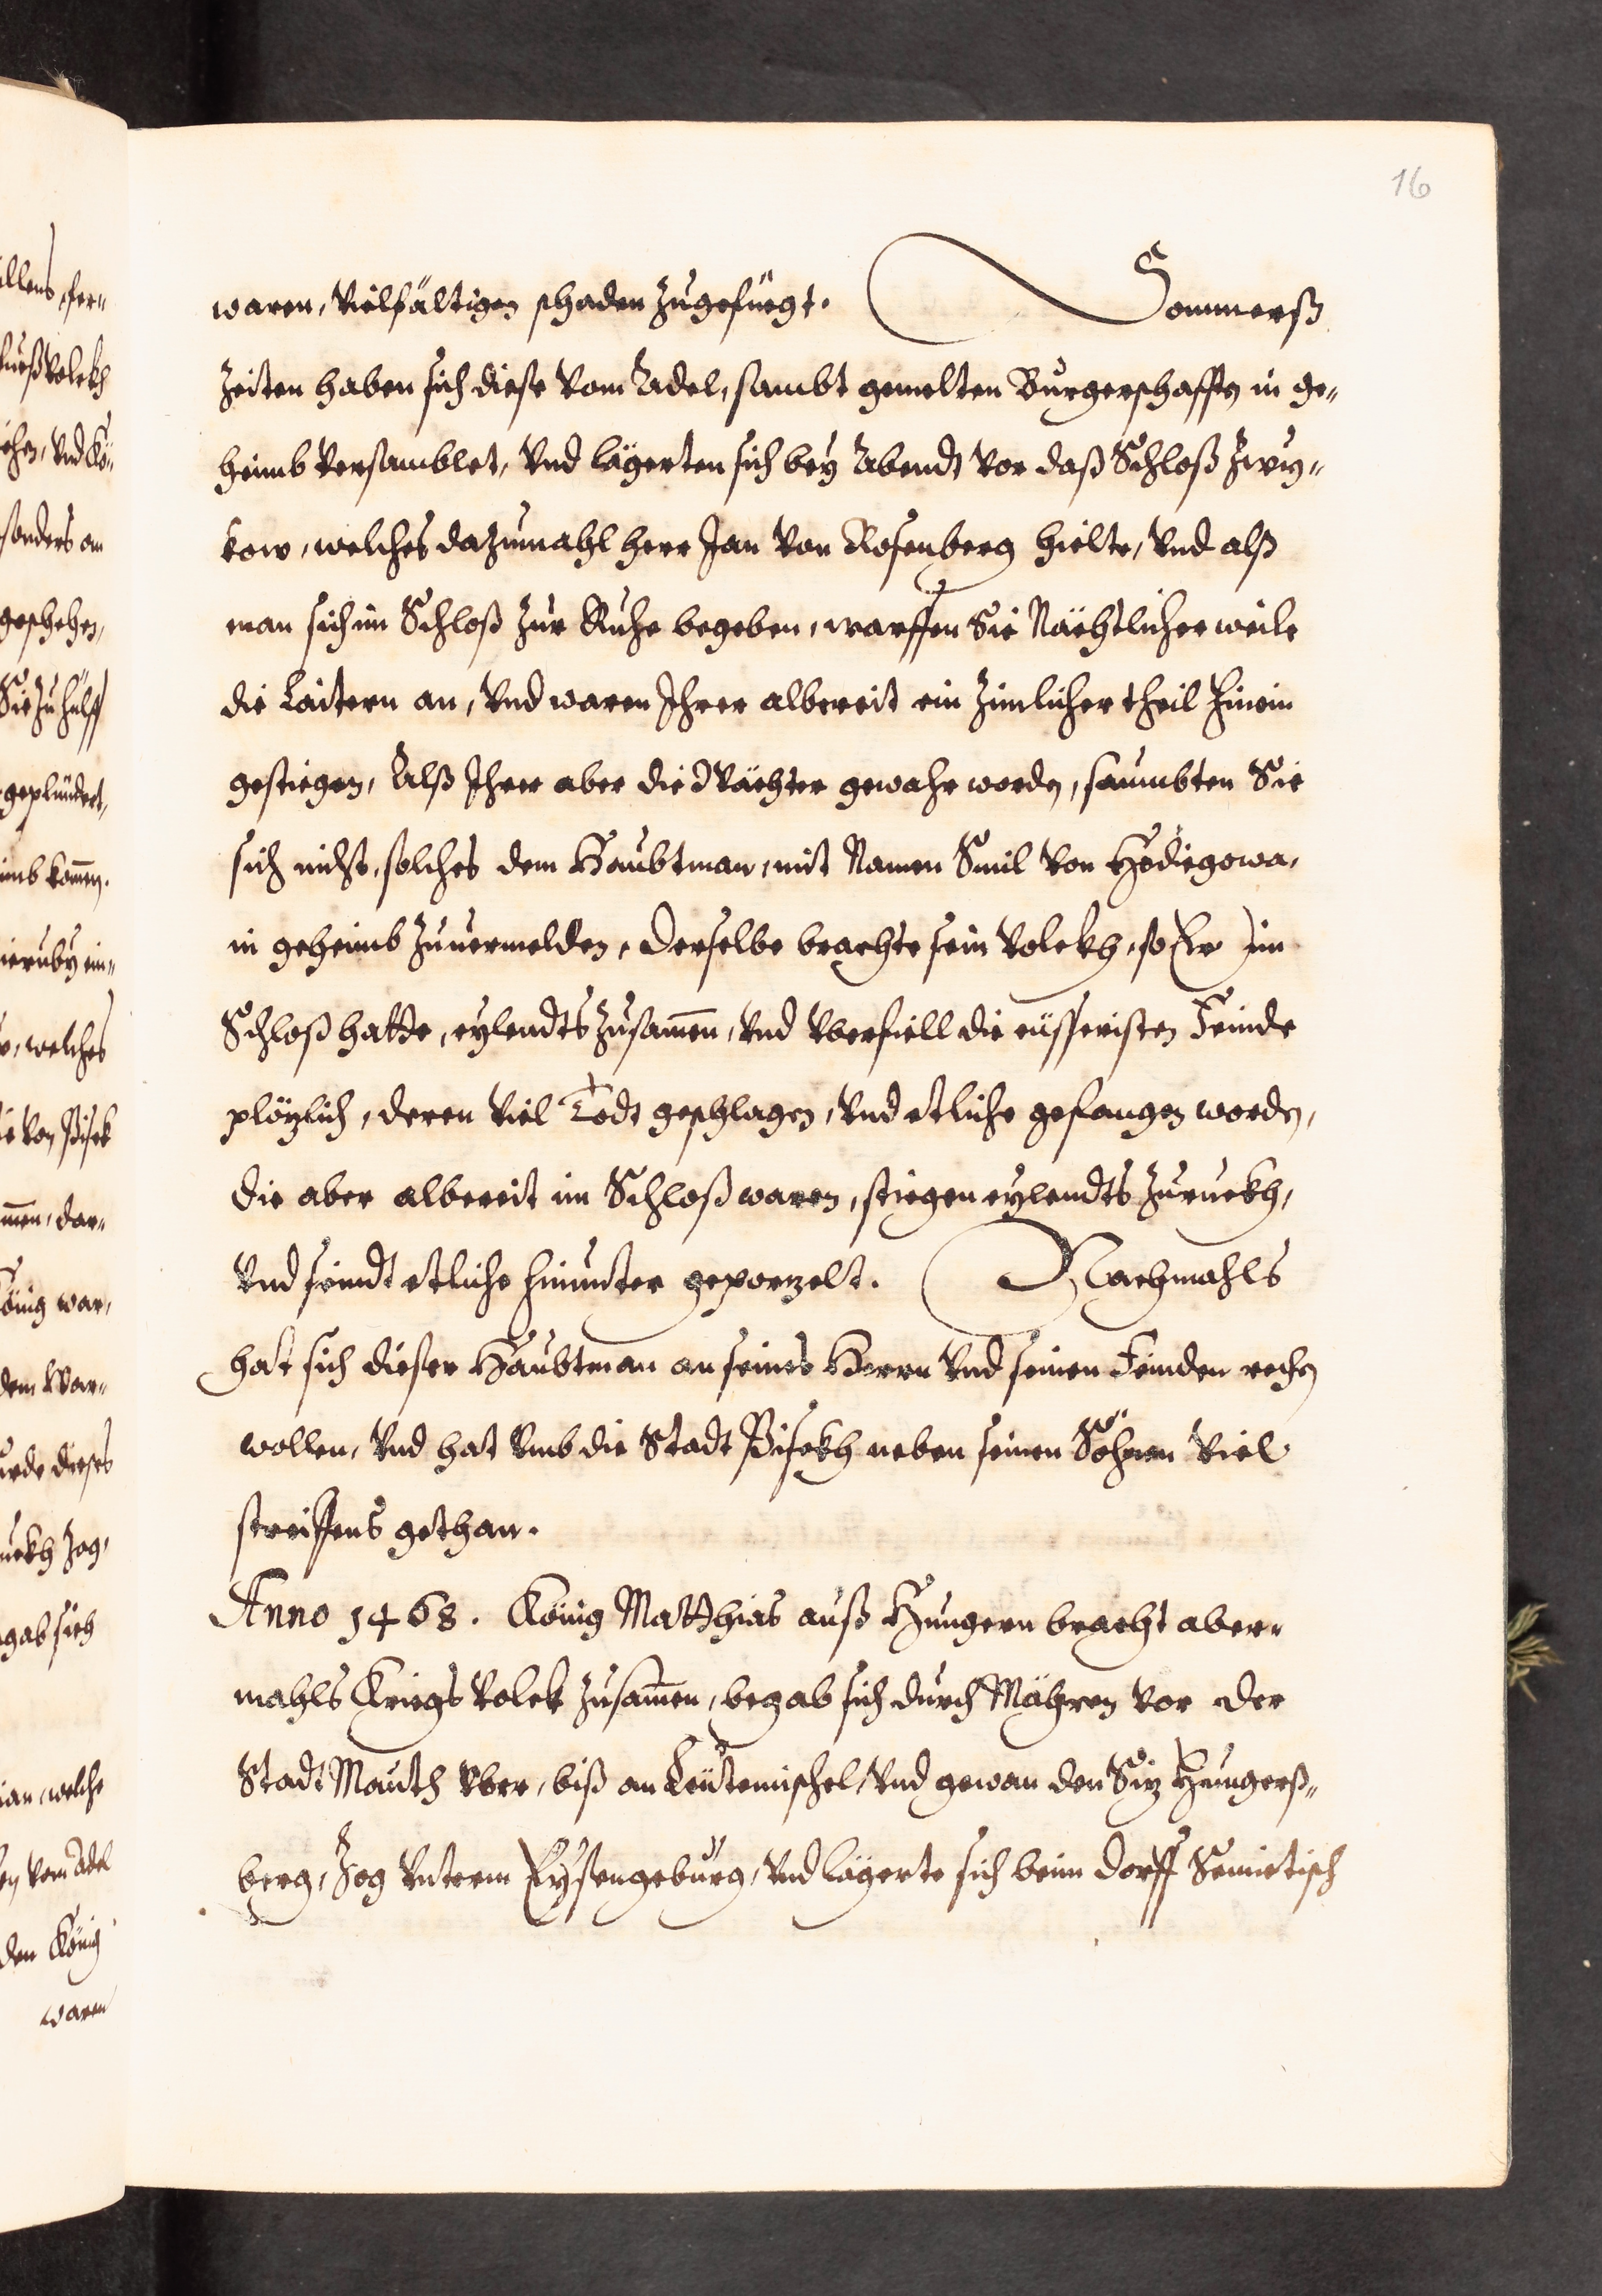 16
waren, vielfältigen schaden zugefüegt. Sommerß
zeiten haben sich diese vom Adel, sambt gemelten Burgerschafften in ge-
heimb versamblet, vnd lägerten sich bey Abendt vor daß Schloß Zwy-
kow, welches dazumahl herr Jan von Rosenberg hielte, vnd alß
man sich im Schloß zur Ruhe begeben, warffen Sie Nächtlicher weile
die Laitern an, vnd waren Ihrer albereit ein zimlicher theil hinein
gestiegen, Alß Ihrer aber die Wächter gewahr worden, saumbten Sie
sich nicht, solches dem Haubtman, mit Namen Smil von Hodiegowa,
in geheimb zuuermelden, derselbe brachte sein volckh, so Er im
Schloß hatte, eylendts zusam̃en, vnd vberfiell die eüsseristen Feinde
plözlich, deren viel Todt geschlagen, vnd etliche gefangen worden,
die aber albereit im Schloß waren, stiegen eylendts zuruckh,
vnd seindt etliche hinunter geporzelt. Nachmahls
hat sich dieser Haubtman an seines Herrn vnd seinen Feinden rechen
wollen, vnd hat vmb die Stadt Pisekh neben seinen Söhnen viel
streiffens gethan.
Anno 1468. König Matthias auß Hungern bracht aber-
mahls Kriegs volck zusam̃en, begab sich durch Mähren vor der
Stadt Mauth vber, biß an Leütemischel, vnd gewan den Siz Hungerß-
berg, Zog vnterm Eysengebürg, vnd lägerte sich beim dorff Semietisch